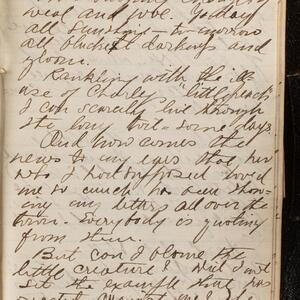 weal and woe. Today
all sunshine — to-morrow
all blackest darkness and
gloom.
Rankling with the
use of Charley "little peach"
I can scarcely live through
the long toil-some days.
And now comes the
news to my ears that her
who I had supposed loved
me so much has been show-
ing my letters all over the
town. Everybody is quoting
from them.
But can I blame the
little creature? Did I not
set the example